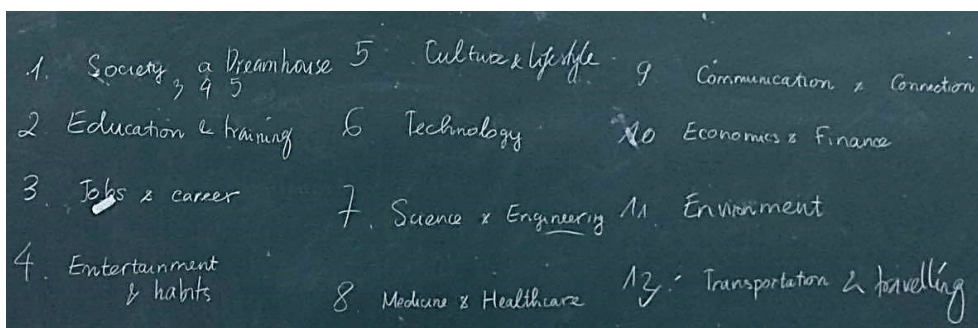 1. Society, a Dreamhouse
3 4 5
2 Education & training
3. Jobs & career
4. Entertainment
& habits
5 Culture & lifestyle
6 Technology
7. Science & Engineering
8. Medicine & Healthcare
9 Communication & Connection
10 Economics & Finance
11 Environment
12. Transportation & travelling